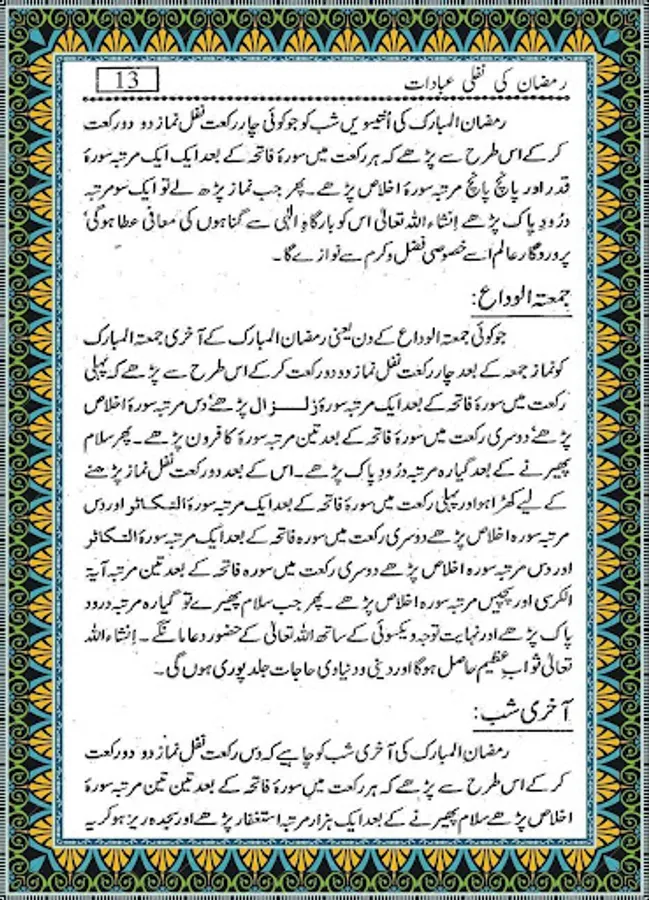 رمضان کی نفلی عبادات 13
رمضان المبارک کی اُنتیسویں شب کو جو کوئی چار رکعت نفل نماز دو دو رکعت
کر کے اس طرح سے پڑھے کہ ہر رکعت میں سورۂ فاتحہ کے بعد ایک ایک مرتبہ سورۂ
قدر اور پانچ پانچ مرتبہ سورۂ اخلاص پڑھے۔ پھر جب نماز پڑھ لے تو ایک سو مرتبہ
درُودِ پاک پڑھے اِنشاء اللہ تعالیٰ اس کو بارگاہِ الٰہی سے گناہوں کی معافی عطا ہوگی'
پروردگارِ عالم اسے خصوصی فضل و کرم سے نوازے گا۔
جمعتہ الوداع:
جو کوئی جمعتہ الوداع کے دن یعنی رمضان المبارک کے آخری جمعتہ المبارک
کو نمازِ جمعہ کے بعد چار رکعت نفل نماز دو دو رکعت کر کے اس طرح سے پڑھے کہ پہلی
رکعت میں سورۂ فاتحہ کے بعد ایک مرتبہ سورۂ زلـــزال پڑھے' دس مرتبہ سورۂ اخلاص
پڑھے' دوسری رکعت میں سورۂ فاتحہ کے بعد تین مرتبہ سورۂ کافرون پڑھے۔ پھر سلام
پھیرنے کے بعد گیارہ مرتبہ درُودِ پاک پڑھے۔ اس کے بعد دو رکعت نفل نماز پڑھنے
کے لیے کھڑا ہو اور پہلی رکعت میں سورۂ فاتحہ کے بعد ایک مرتبہ سورۂ التکاثر اور دس
مرتبہ سورہ اخلاص پڑھے دوسری رکعت میں سورہ فاتحہ کے بعد ایک مرتبہ سورۂ التکاثر
اور دس مرتبہ سورہ اخلاص پڑھے دوسری رکعت میں سورہ فاتحہ کے بعد تین مرتبہ آیۃ
الکرسی اور پچیس مرتبہ سورہ اخلاص پڑھے۔ پھر جب سلام پھیرے تو گیارہ مرتبہ درود
پاک پڑھے اور نہایت توجہ و یکسوئی کے ساتھ اللہ تعالیٰ کے حضور دعا مانگے۔ اِنشاء اللہ
تعالیٰ ثوابِ عظیم حاصل ہوگا اور دینی و دنیاوی حاجات جلد پوری ہوں گی۔
آخری شب:
رمضان المبارک کی آخری شب کو چاہیے کہ دس رکعت نفل نماز دو دو رکعت
کر کے اس طرح سے پڑھے کہ ہر رکعت میں سورۂ فاتحہ کے بعد تین تین مرتبہ سورۂ
اخلاص پڑھے سلام پھیرنے کے بعد ایک ہزار مرتبہ استغفار پڑھے اور سجدہ ریز ہو کر یہ